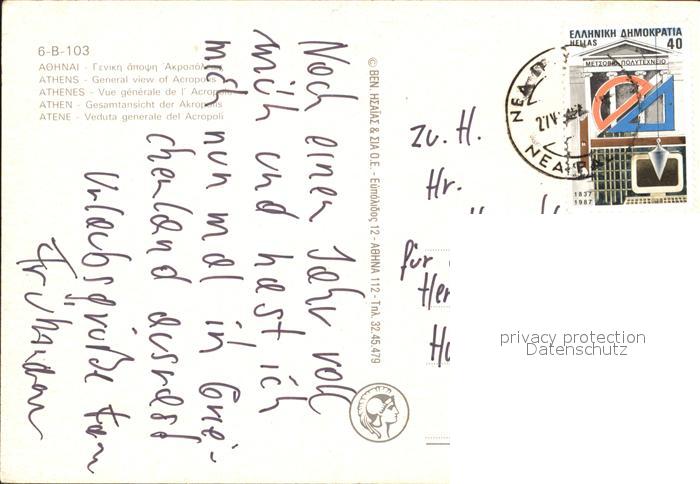 6-B-103
ΑΘΗΝΑΙ - Γενική άποψη 'Ακροπόλεως
ATHENS - General view of Acropolis
ATHENES - Vue générale de l' Acropole
ATHEN - Gesamtansicht der Akropolis
ATENE - Veduta generale del Acropoli
Noch einen Jahr voll
müh und hast ich
mich nun mal in Grie-
chenland ausrast
Urlaubsgrüße
© ΒΕΝ. ΗΣΑΪΑΣ & ΣΙΑ Ο.Ε. - Εὐπόλιδος 12 - ΑΘΗΝΑ 112 - Τηλ. 32.45.479
ΕΛΛΗΝΙΚΗ ΔΗΜΟΚΡΑΤΙΑ
HELLAS 40
ΜΕΤΣΟΒΙΟ ΠΟΛΥΤΕΧΝΕΙΟ
1837
1987
zu. H.
Hr.
für
privacy protection
Datenschutz